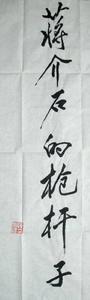 蒋介石的枪杆子